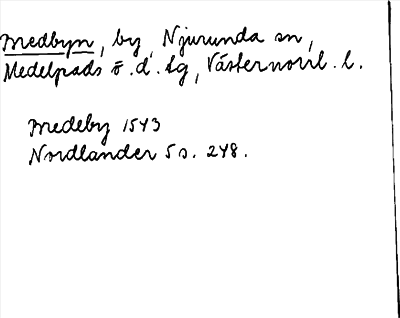 Medbyn, by, Njurunda sn,
Medelpads ö. d. tg, Västernorrl. l.
Medeby 1543
Nordlander 5 s. 248.